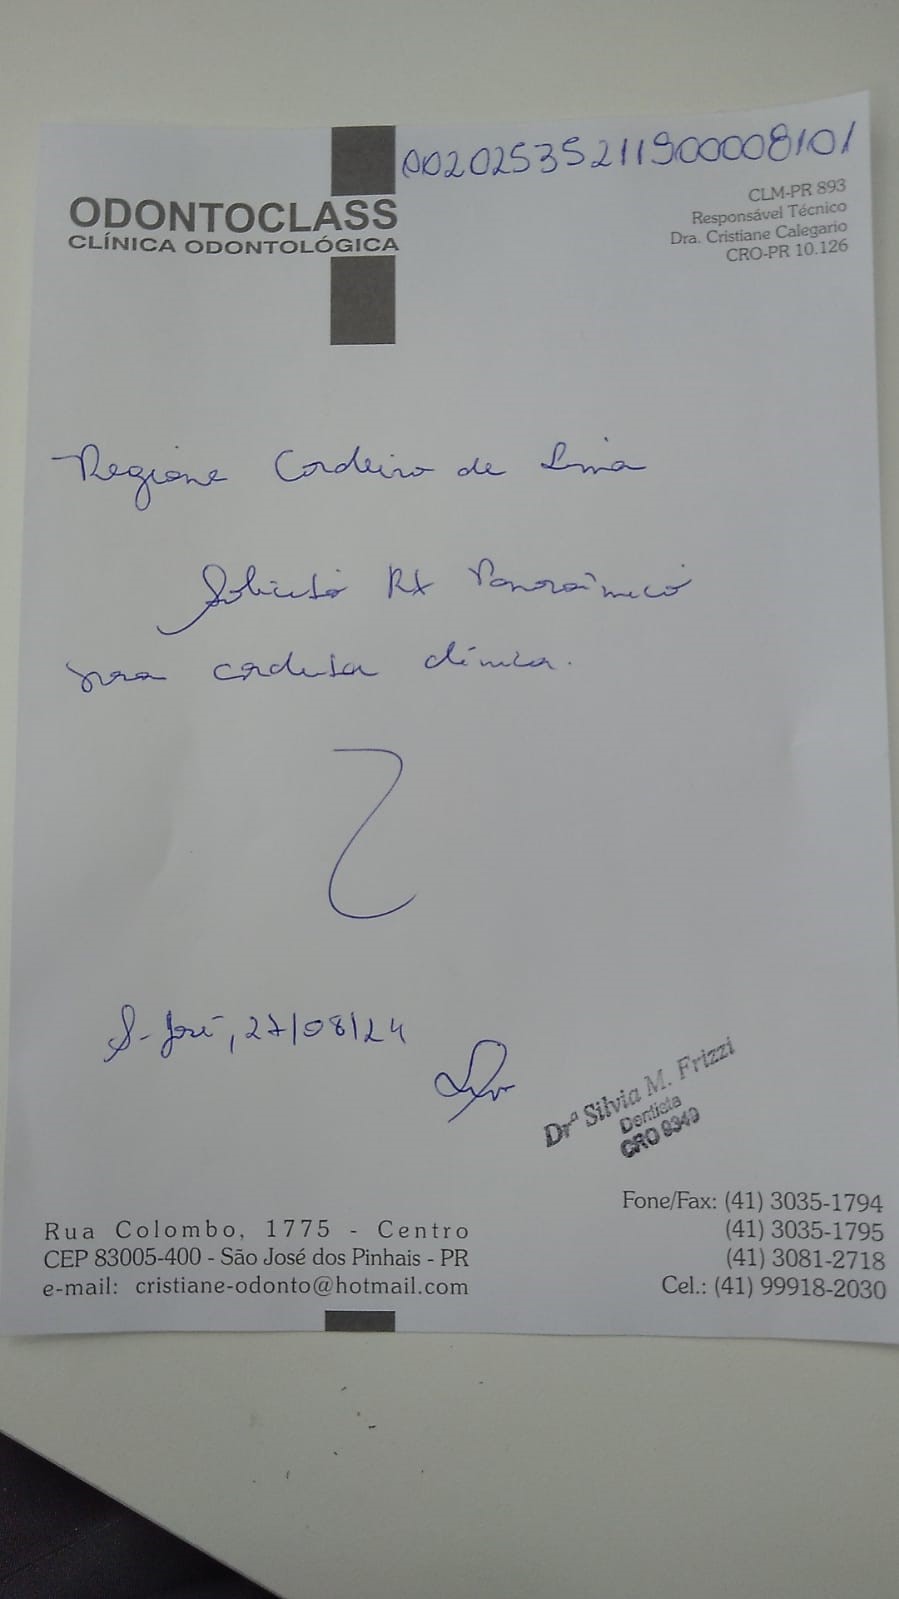 00202535211900008101
ODONTOCLASS
CLÍNICA ODONTOLÓGICA
CLM-PR 893
Responsável Técnico
Dra. Cristiane Calegario
CRO-PR 10.126
Regiane Cordeiro de Lima
Solicito RX Panorâmico
para conduta clínica.
S. José, 27/08/24
Drª Silvia M. Frizzi
Dentista
CRO 9349
Rua Colombo, 1775 - Centro
CEP 83005-400 - São José dos Pinhais - PR
e-mail: cristiane-odonto@hotmail.com
Fone/Fax: (41) 3035-1794
(41) 3035-1795
(41) 3081-2718
Cel.: (41) 99918-2030